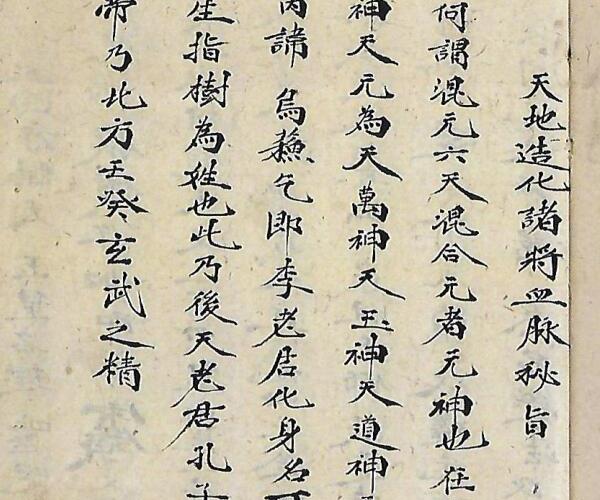 天地造化諸將血脉秘旨
何謂混元六天混合元者元神也在
神天元為天萬神天玉神天道神
諦烏㷌炁即李老居化身名
生指樹為姓也此乃後天老君孔子
帝乃北方壬癸玄武之精